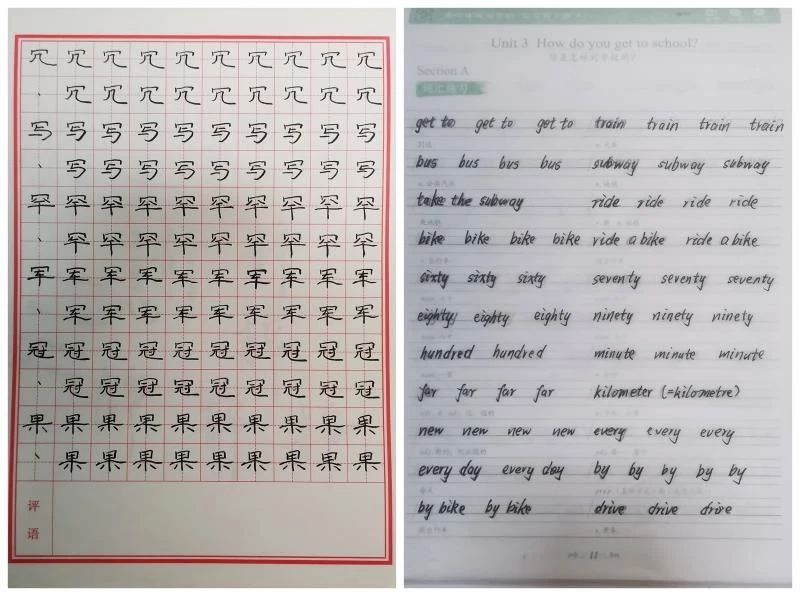 冗 冗 冗 冗 冗 冗 冗 冗 冗 冗
、 冗 冗 冗 冗 冗 冗 冗 冗 冗
写 写 写 写 写 写 写 写 写 写
、 写 写 写 写 写 写 写 写 写
罕 罕 罕 罕 罕 罕 罕 罕 罕 罕
、 罕 罕 罕 罕 罕 罕 罕 罕 罕
军 军 军 军 军 军 军 军 军 军
、 军 军 军 军 军 军 军 军 军
冠 冠 冠 冠 冠 冠 冠 冠 冠 冠
、 冠 冠 冠 冠 冠 冠 冠 冠 冠
果 果 果 果 果 果 果 果 果 果
、 果 果 果 果 果 果 果 果 果
评语
Unit 3 How do you get to school?
你是怎样到学校的?
Section A
词汇练习
get to get to get to train train train train
bus bus bus bus subway subway subway
take the subway ride ride ride ride
bike bike bike bike ride a bike ride a bike
sixty sixty sixty seventy seventy seventy
eighty eighty eighty ninety ninety ninety
hundred hundred minute minute minute
far far far far kilometer (=kilometre)
new new new new every every every
every day every day by by by by by
by bike by bike drive drive drive
11